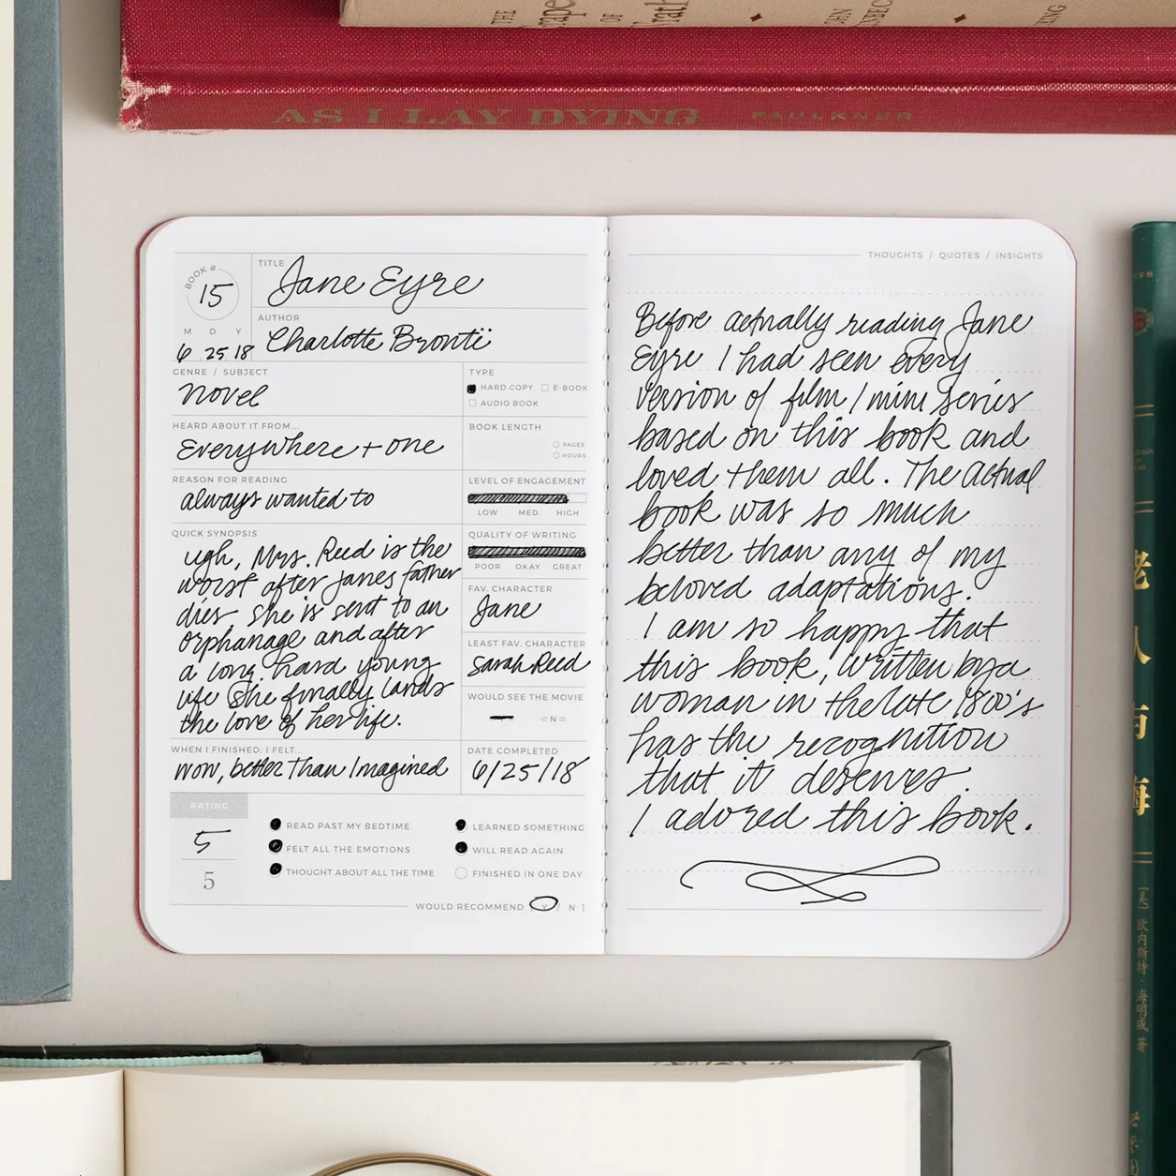 THE
OF
AS I LAY DYING FAULKNER
BOOK #
15
M D Y
6 25 18
TITLE
Jane Eyre
AUTHOR
Charlotte Brontë
GENRE / SUBJECT
Novel
TYPE
HARD COPY E-BOOK
AUDIO BOOK
HEARD ABOUT IT FROM...
Everywhere + one
BOOK LENGTH
PAGES
HOURS
REASON FOR READING
always wanted to
LEVEL OF ENGAGEMENT
LOW MED. HIGH
QUICK SYNOPSIS
ugh, Mrs. Reed is the
worst after Janes father
dies she is sent to an
orphanage and after
a long hard young
life she finally lands
the love of her life.
QUALITY OF WRITING
POOR OKAY GREAT
FAV. CHARACTER
Jane
LEAST FAV. CHARACTER
Sarah Reed
WOULD SEE THE MOVIE
N
WHEN I FINISHED, I FELT...
wow, better than Imagined
DATE COMPLETED
6/25/18
RATING
5
5
READ PAST MY BEDTIME
FELT ALL THE EMOTIONS
THOUGHT ABOUT ALL THE TIME
LEARNED SOMETHING
WILL READ AGAIN
FINISHED IN ONE DAY
WOULD RECOMMEND [ Y / N ]
THOUGHTS / QUOTES / INSIGHTS
Before actually reading Jane
Eyre I had seen every
version of film / mini series
based on this book and
loved them all. The actual
book was so much
better than any of my
beloved adaptations.
I am so happy that
this book, written by a
woman in the late 1800's
has the recognition
that it deserves.
I adored this book.
老人与海
[美] 欧内斯特·海明威 著